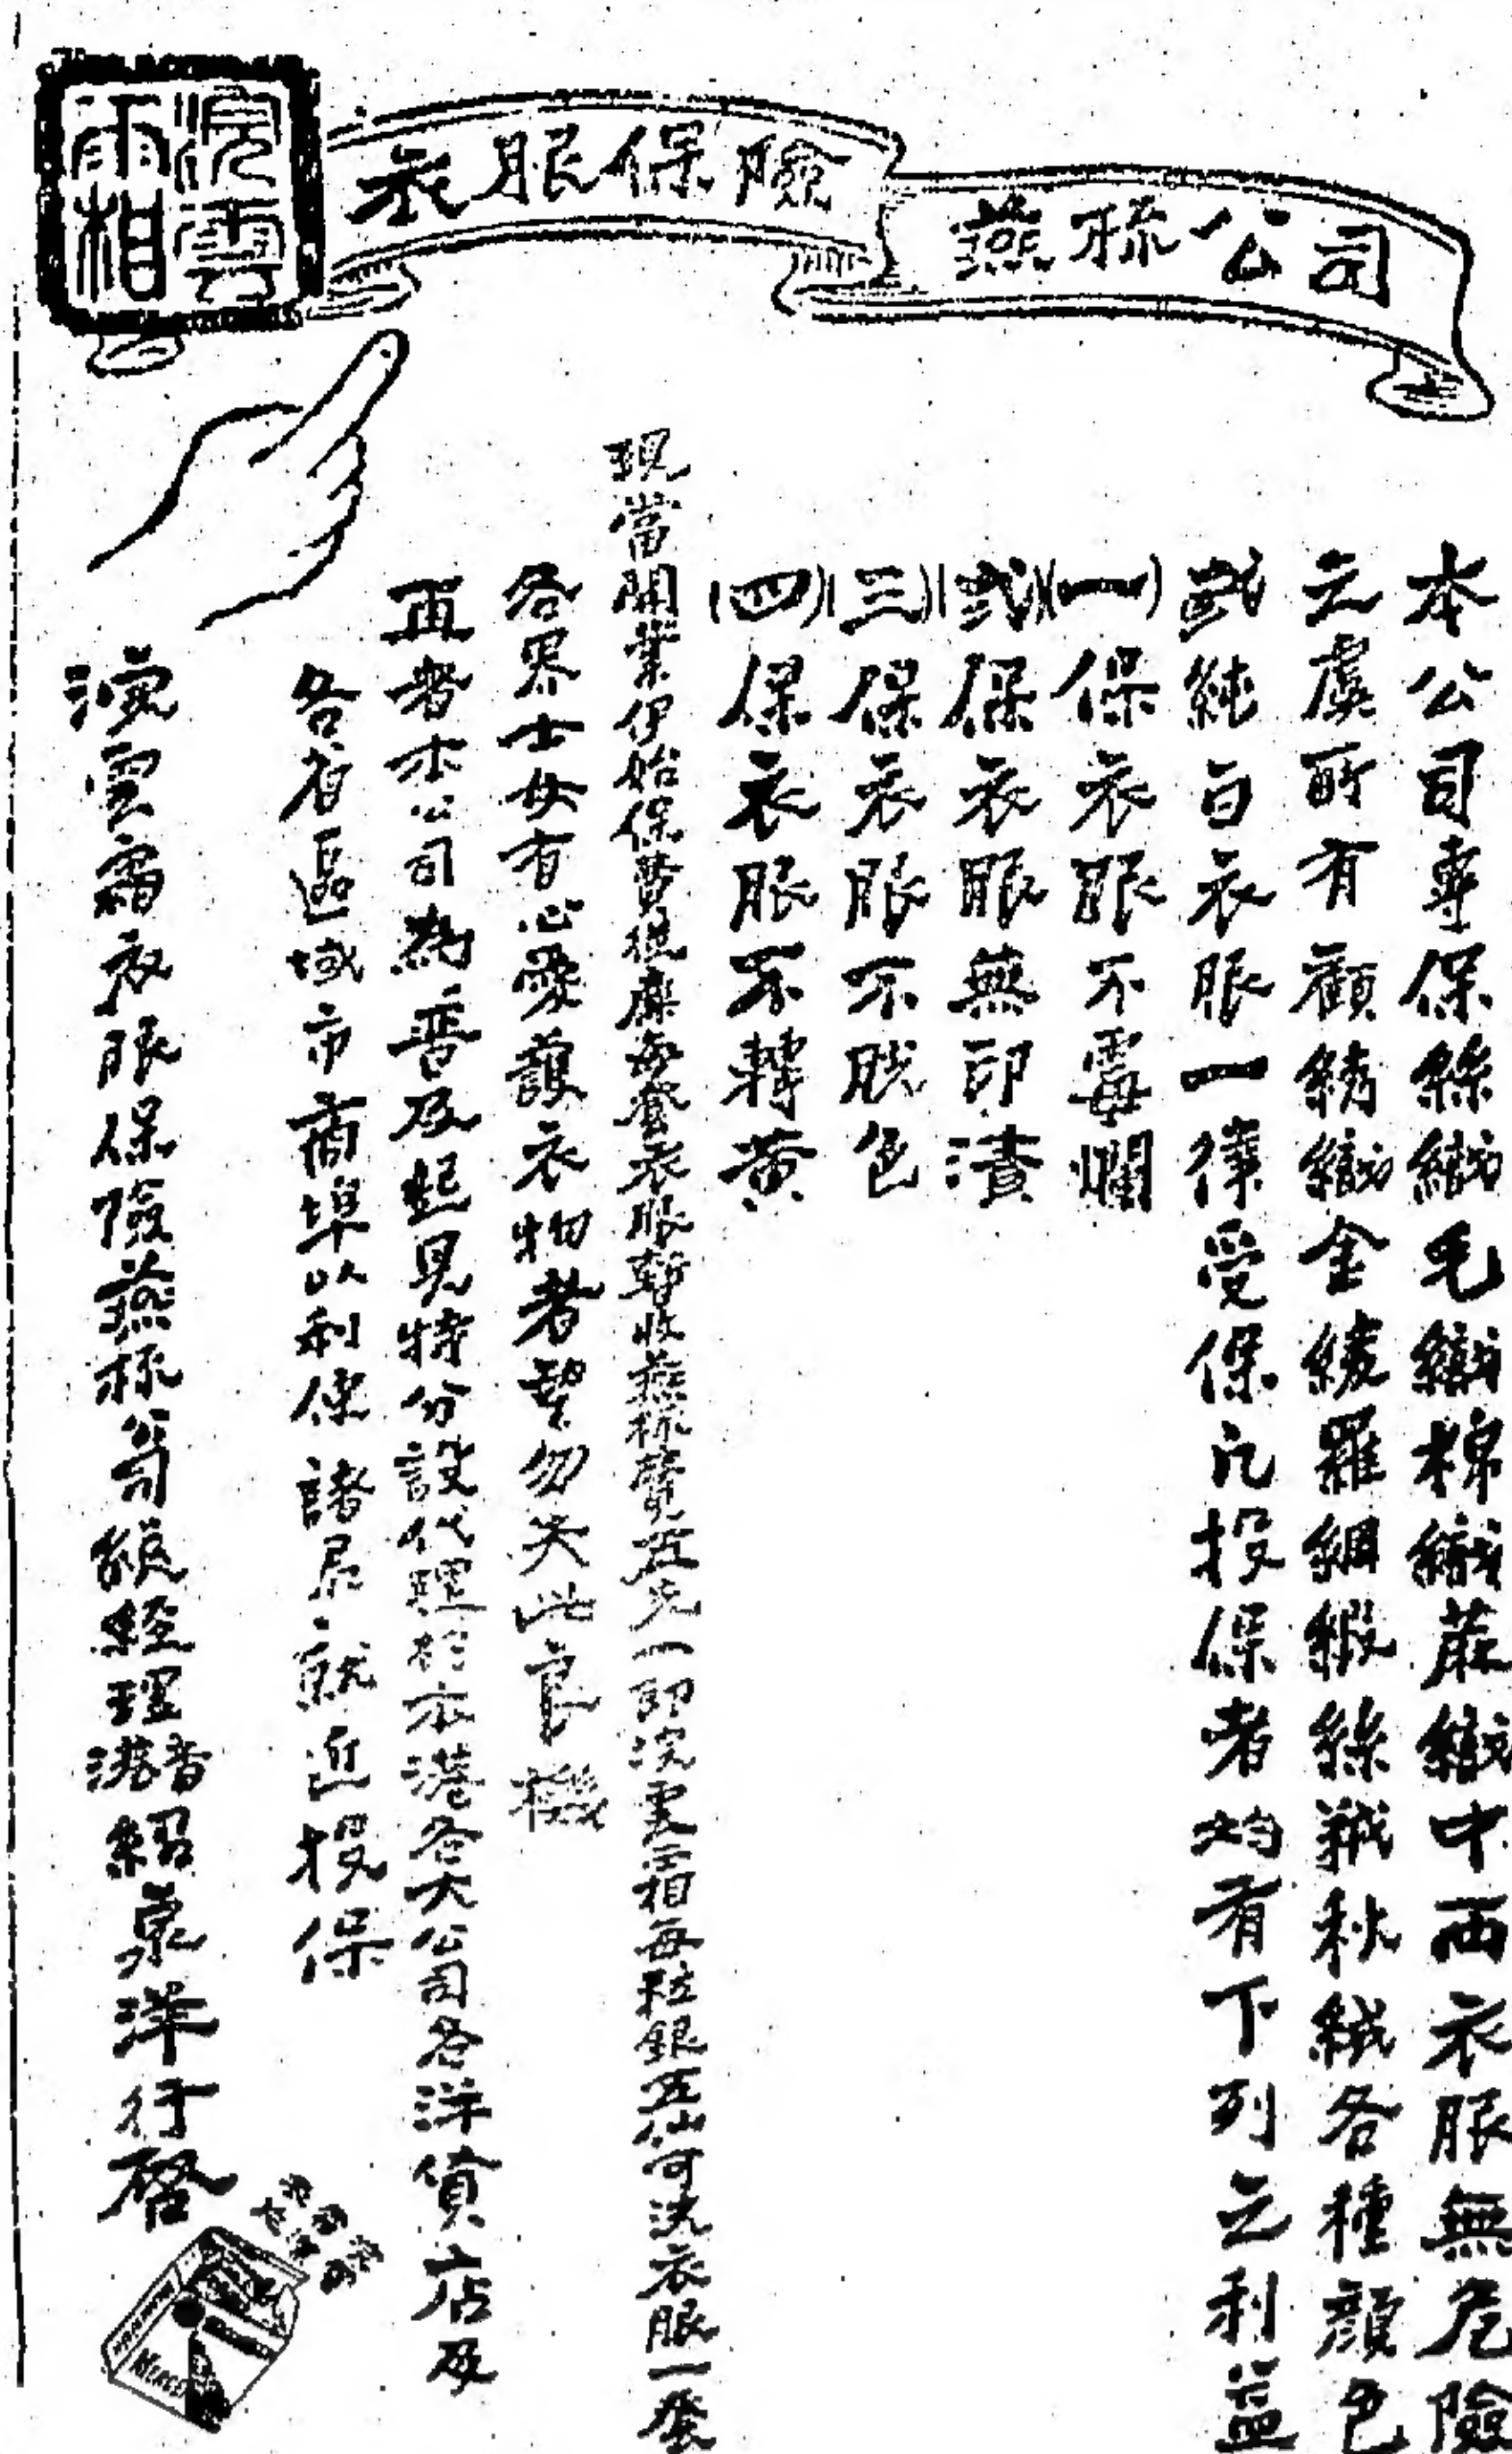 浣雲霜
衣服保險
燕梳公司
本公司專保絲織毛織棉織蔴織中西衣服無危險
之虞所有顧綉織金綾羅綢緞絲羢秋絨各種顏色
或純白衣服一律受保凡投保者均有下列之利益
(一)保衣服不霉爛
(弍)保衣服無印漬
(三)保衣服不脫色
(四)保衣服不轉黃
現當開業伊始保費從廉每套衣服暫收燕梳費五先一即浣雲霜每粒銀五仙可洗衣服一套
各界士女有心愛護衣物者望勿失此良機
再者本公司為普及起見特分設代理於本港各大公司各洋貨店及
各省區域市商埠以利保諸君就近投保
浣雲霜衣服保險燕梳公司總經理香港紹泉洋行啓